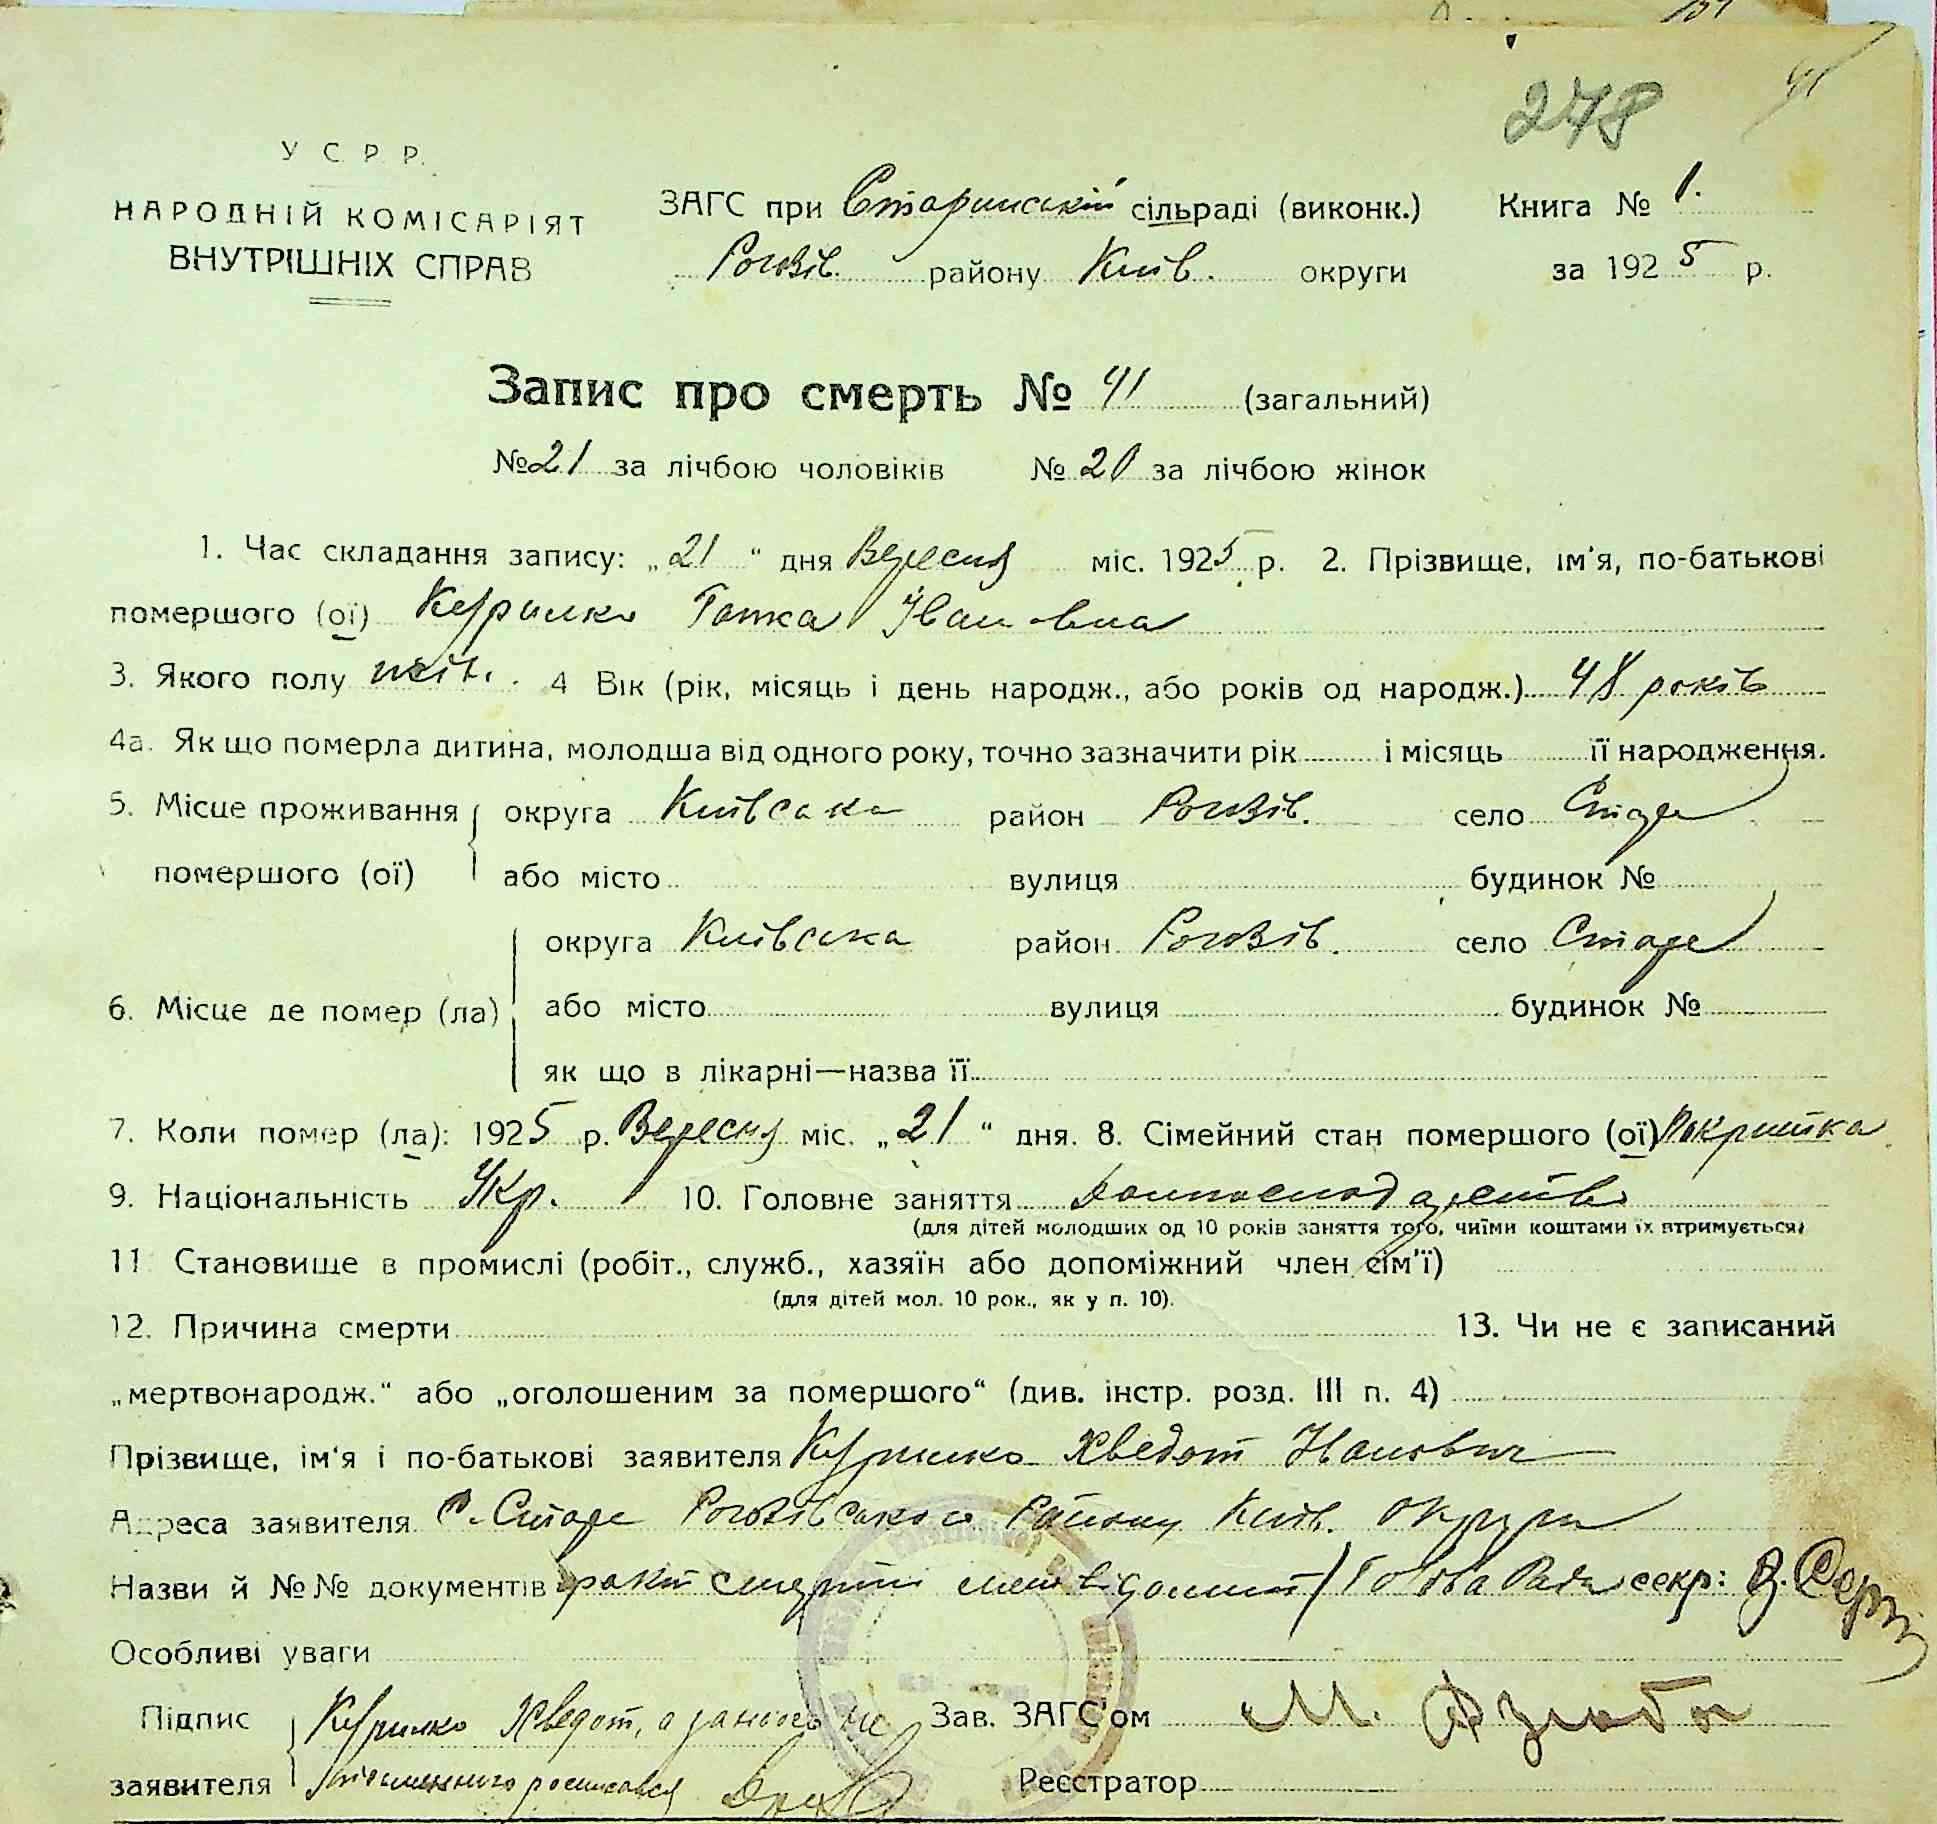 278
41
У С Р Р.
НАРОДНІЙ КОМІСАРІЯТ
ВНУТРІШНІХ СПРАВ
ЗАГС при Старинській сільраді (виконк.) Книга № 1.
Рогозів. району Київ. округи за 1925 р.
Запис про смерть № 41 (загальний)
№ 21 за лічбою чоловіків № 20 за лічбою жінок
1. Час складання запису: „21“ дня Вересня міс. 1925 р. 2. Прізвище, ім'я, по-батькові
помершого (ої) Курилко Гапка Івановна
3. Якого полу жін. 4 Вік (рік, місяць і день народж., або років од народж.) 48 років
4а. Як що померла дитина, молодша від одного року, точно зазначити рік і місяць її народження.
5. Місце проживання округа Київська район Рогозів. село Старе
помершого (ої) або місто вулиця будинок №
округа Київська район Рогозів. село Старе
6. Місце де помер (ла) або місто вулиця будинок №
як що в лікарні—назва її
7. Коли помер (ла): 1925 р. Вересня міс. „21“ дня. 8. Сімейний стан помершого (ої) Покритка
9. Національність Укр. 10. Головне заняття Домгосподарство
(для дітей молодших од 10 років заняття того, чиїми коштами їх втримується)
11 Становище в промислі (робіт., служб., хазяїн або допоміжний член сім'ї)
(для дітей мол. 10 рок., як у п. 10).
12. Причина смерти 13. Чи не є записаний
„мертвонародж.“ або „оголошеним за помершого“ (див. інстр. розд. III п. 4)
Прізвище, ім'я і по-батькові заявителя Курилко Хведот Іванович
Адреса заявителя с. Старе Рогозівського Району Київ. Округи
Назви й №№ документів факт смерти Голова Ради секр:
Особливі уваги
Підпис Курилко Хведот, а за нього не Зав. ЗАГС'ом М. Дзюба
заявителя письменного росписався Реєстратор